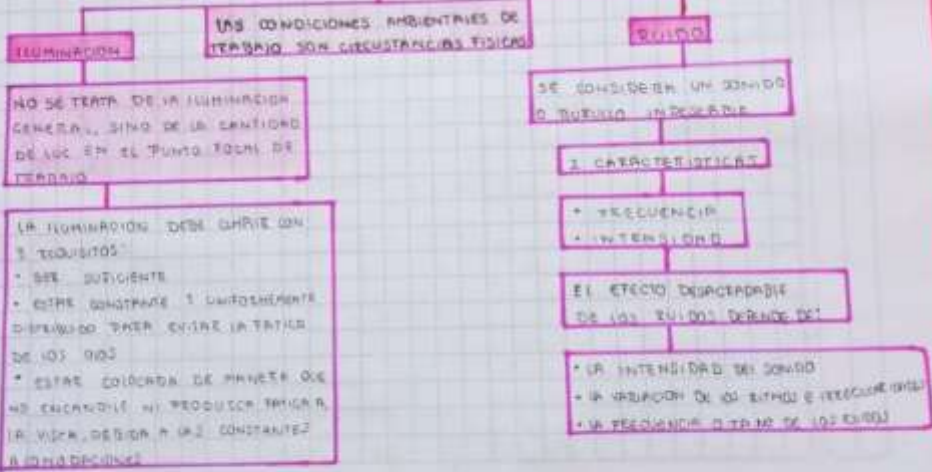 LAS CONDICIONES AMBIENTALES DE
TRABAJO SON CIRCUSTANCIAS FISICAS
ILUMINACION
NO SE TRATA DE LA ILUMINACION
GENERAL, SINO DE LA CANTIDAD
DE LUC EN EL PUNTO FOCAL DE
TRABAJO
LA ILUMINACION DEBE CUMPLIR CON
3 REQUISITOS:
• SER SUFICIENTE
• ESTAR CONSTANTE Y UNIFORMEMENTE
DISTRIBUIDO PARA EVITAR LA FATIGA
DE LOS OJOS
• ESTAR COLOCADA DE MANERA QUE
NO ENCANDILE NI PRODUSCA FATIGA A
LA VISTA, DEBIDA A LAS CONSTANTES
ACOMODACIONES
RUIDO
SE CONSIDERA UN SONIDO
O BURULLO INDESEABLE
2 CARACTERISTICAS
• FRECUENCIA
• INTENSIDAD
EL EFECTO DESAGRADABLE
DE LOS RUIDOS DEPENDE DE:
• LA INTENSIDAD DEL SONIDO
• LA VARIACION DE LOS RITMOS E IRREGULARIDADES
• LA FRECUENCIA O TONO DE LOS RUIDOS